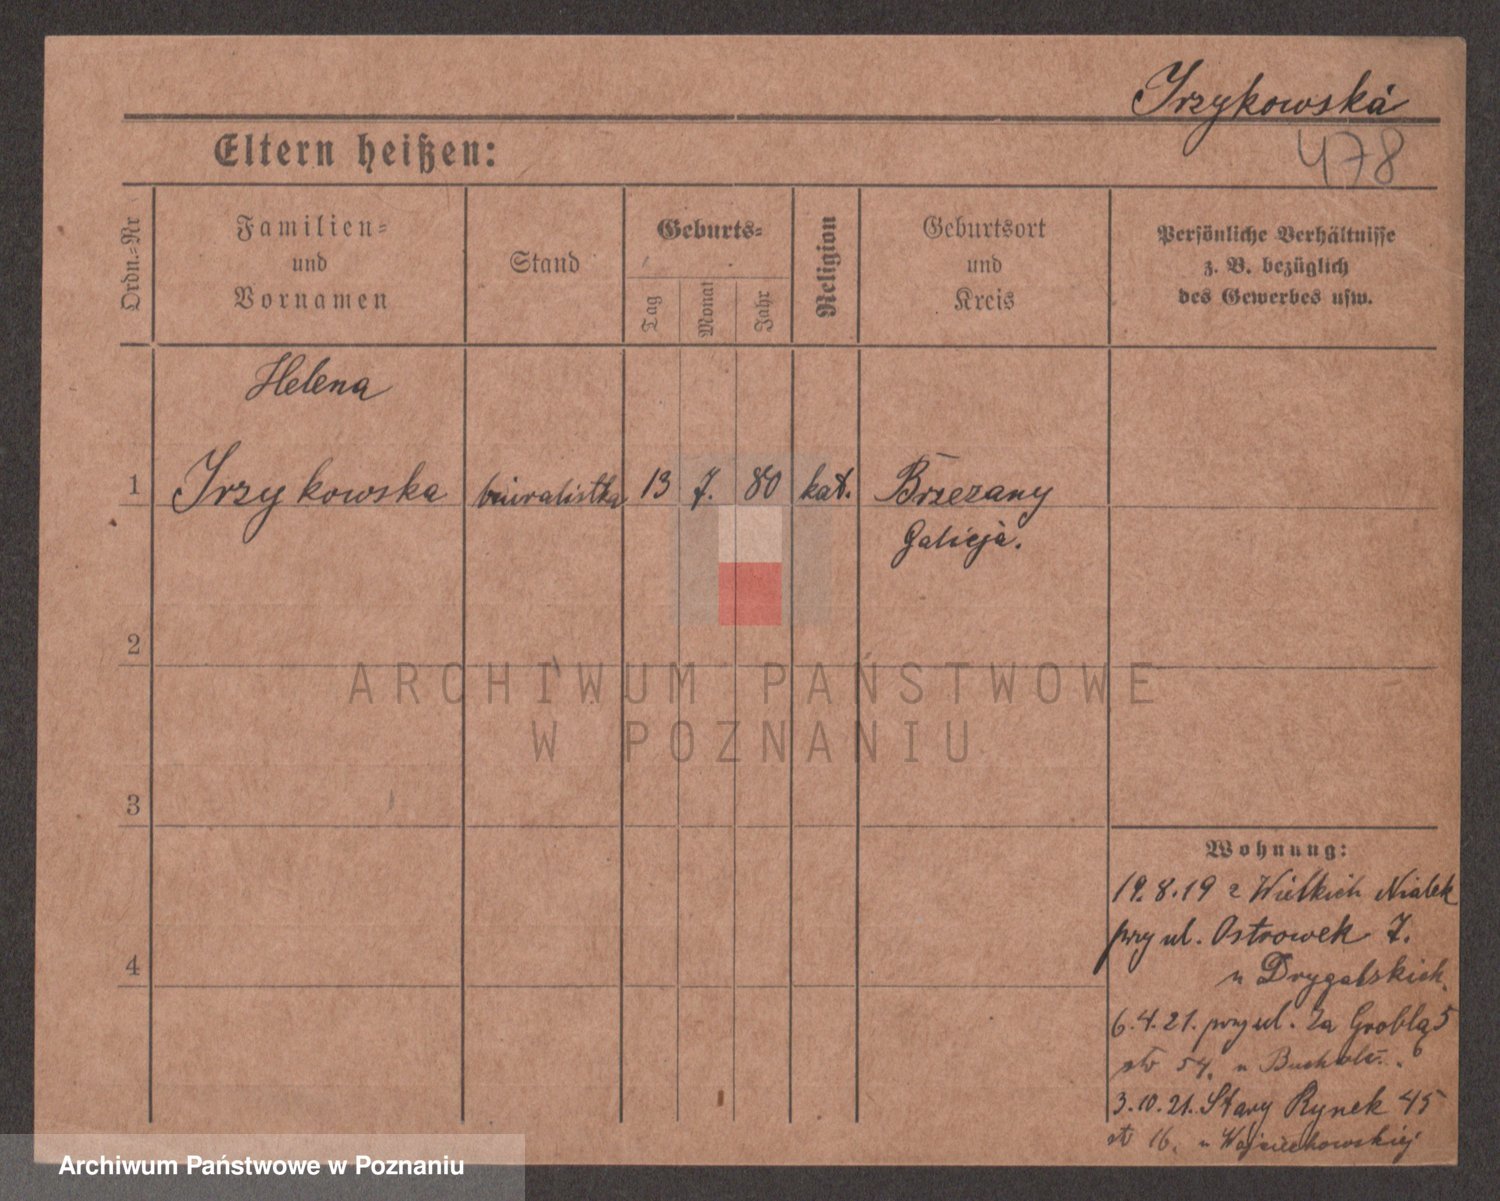 Irzykowska
478
Eltern heißen:
Ordn.-Nr
Familien-
und
Vornamen
Stand
Geburts-
Tag
Monat
Jahr
Religion
Geburtsort
und
Kreis
Persönliche Verhältnisse
z. B. bezüglich
des Gewerbes usw.
Helena
1 Irzykowska biuralistka 13 7. 80 kat. Brzezany
Galicja.
2
3
4
ARCHIWUM PAŃSTWOWE
W POZNANIU
Wohnung:
19.8.19 z Wielkich
przy ul. Ostrowek 7.
u Drygalskich.
6.4.21. przy ul. Za Groblą 5
54. u
3.10.21. Stary Rynek 45
16. u Wojciechowskiej
Archiwum Państwowe w Poznaniu